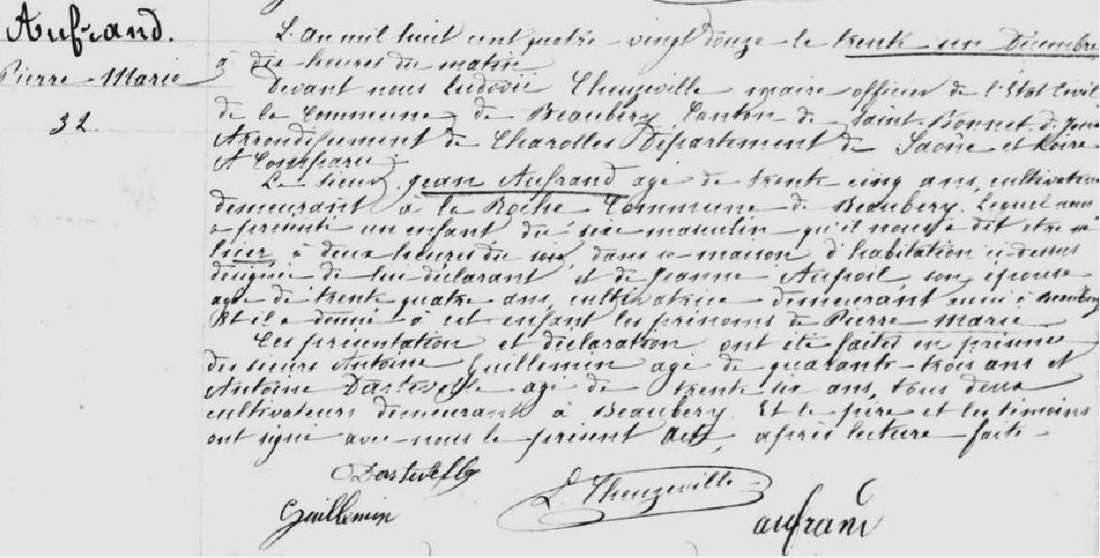 Aufrand.
Pierre-Marie
32.
L'an mil huit cent quatre-vingt douze le trente un Décembre
à dix heures du matin
Devant nous Ludovic Theuzeville maire officier de l'Etat Civil
de la Commune de Beaubery Canton de Saint-Bonnet-d-Joux
Arrondissement de Charolles Département de Saône et Loire
A Comparu
Le sieur Jean Aufrand agé de trente cinq ans, cultivateur
demeurant à la Roche Commune de Beaubery. Lequel nous
a présenté un enfant du sexe masculin qu'il nous a dit être né
hier à deux heures du soir, dans sa maison d'habitation ci-dessus
désignée de lui déclarant et de Jeanne Aupoil, son épouse
agée de trente quatre ans, cultivatrice demeurant aussi à Beaubery
Et il a donné à cet enfant les prénoms de Pierre Marie
Ces présentation et déclaration ont été faites en présence
des sieurs Antoine Guillemin agé de quarante-trois ans et
Antoine agé de trente six ans, tous deux
cultivateurs demeurant à Beaubery. Et le père et les témoins
ont signé avec nous le présent acte, après lecture faite -
Guillemin
L. Theuzeville
aufrand